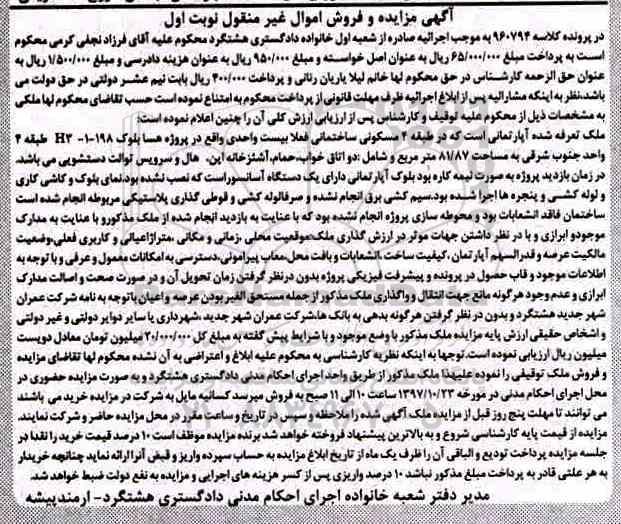 آگهی مزایده و فروش اموال غیر منقول نوبت اول
در پرونده کلاسه ۹۶۰۷۹۴ به موجب اجرائیه صادره از شعبه اول خانواده دادگستری هشتگرد محکوم علیه آقای فرزاد نجفی کرمی محکوم
است به پرداخت مبلغ ۶۵/۰۰۰/۰۰۰ ریال به عنوان اصل خواسته و مبلغ ۹۵۰/۰۰۰ ریال به عنوان هزینه دادرسی و مبلغ ۱/۵۰۰/۰۰۰ ریال به
عنوان حق الزحمه کارشناس در حق محکوم لها خانم لیلا یاریان رنانی و پرداخت ۴۰۰/۰۰۰ ریال بابت نیم عشر دولتی در حق دولت می
باشد،نظر به اینکه مشارالیه پس از ابلاغ اجرائیه ظرف مهلت قانونی از پرداخت محکوم به امتناع نموده است حسب تقاضای محکوم لها ملکی
به مشخصات ذیل از محکوم علیه توقیف و کارشناس پس از ارزیابی ارزش کلی آن را چنین اعلام نموده است:
ملک تعرفه شده آپارتمانی است که در طبقه ۴ مسکونی ساختمانی فعلا بیست واحدی واقع در پروژه هسا بلوک ۱۹۸-۱- H۳ طبقه ۴
واحد جنوب شرقی به مساحت ۸۱/۸۷ متر مربع و شامل :دو اتاق خواب،حمام،آشپزخانه اپن، هال و سرویس توالت دستشویی می باشد.
در زمان بازدید پروژه به صورت نیمه کاره بود بلوک آپارتمانی دارای یک دستگاه آسانسور است که نصب نشده بود،نمای بلوک و کاشی کاری
و لوله کشی و پنجره ها اجرا شده بود،سیم کشی برق انجام نشده و صرفا لوله کشی و قوطی گذاری پلاستیکی مربوطه انجام شده است
ساختمان فاقد انشعابات بود و محوطه سازی پروژه انجام نشده بود که با عنایت به بازدید انجام شده از ملک مذکور و با عنایت به مدارک
موجود و ابرازی و با در نظر داشتن جهات موثر در ارزش گذاری ملک،موقعیت محلی ،زمانی و مکانی ،متراژ اعیانی و کاربری فعلی،وضعیت
مالکیت عرصه و قدرالسهم آپارتمان ،کیفیت ساخت ،انشعابات و بافت محل،معابر پیرامونی،دسترسی به امکانات معمول و عرفی و با توجه به
اطلاعات موجود و قابل حصول در پرونده و پیشرفت فیزیکی پروژه بدون درنظر گرفتن زمان تحویل آن و در صورت صحت و اصالت مدارک
ابرازی و عدم وجود هرگونه مانع جهت انتقال و واگذاری ملک مذکور از جمله مستحق الغیر بودن عرصه و اعیان باتوجه به نامه شرکت عمران
شهر جدید هشتگرد و بدون در نظر گرفتن هرگونه بدهی به بانک ها،شرکت عمران شهر جدید ،شهرداری یا سایر دوایر دولتی و غیر دولتی
و اشخاص حقیقی ارزش پایه مزایده ملک مذکور با وضع موجود و با شرایط پیش گفته به مبلغ کل ۲۰/۰۰۰/۰۰۰ میلیون تومان معادل دویست
میلیون ریال ارزیابی نموده است.توجها به اینکه نظریه کارشناسی به محکوم علیه ابلاغ و اعتراضی به آن نشده محکوم لها تقاضای مزایده
و فروش ملک توقیفی را نموده علیهذا ملک مذکور از طریق واحد اجرای احکام مدنی دادگستری هشتگرد و به صورت مزایده حضوری در
محل اجرای احکام مدنی در مورخه ۱۳۹۷/۱۰/۲۳ ساعت ۱۰ الی ۱۱ صبح به فروش میرسد کسانیه مایل به شرکت در مزایده خرید می باشند
می توانند تا مهلت پنج روز قبل از مزایده ملک آگهی شده را ملاحظه و سپس در تاریخ و ساعت مقرر در محل مزایده حاضر و شرکت نمایند.
مزایده از قیمت پایه کارشناسی شروع و به بالاترین پیشنهاد فروخته خواهد شد.برنده مزایده موظف است ۱۰ درصد قیمت خرید را نقدا در
جلسه مزایده پرداخت تودیع و الباقی آن را ظرف یک ماه از تاریخ ابلاغ مزایده به حساب سپرده واریز و قبض آنرا ارائه نماید چنانچه خریدار
به هر علتی قادر به پرداخت مبلغ مذکور نباشد ۱۰ درصد واریزی پس از کسر هزینه های اجرایی و مزایده به نفع دولت ضبط خواهد شد.
مدیر دفتر شعبه خانواده اجرای احکام مدنی دادگستری هشتگرد- ارمندپیشه